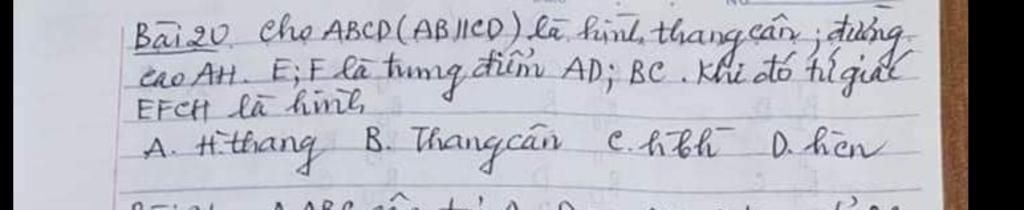 Bài 20. Cho ABCD (AB//CD) là hình thang cân; đường
cao AH. E; F là trung điểm AD; BC. Khi đó tứ giác
EFCH là hình
A. H.thang B. Thang cân C. hbh D.